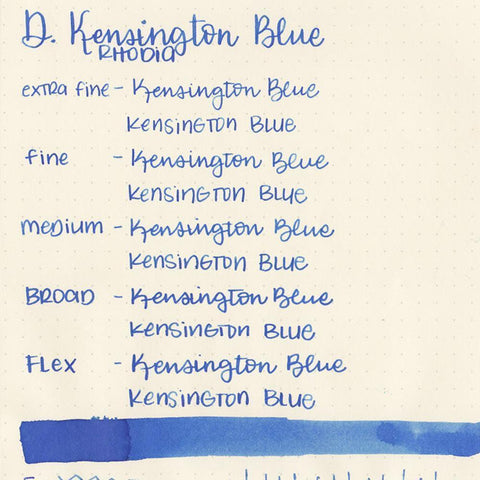 D. Kensington Blue
RHODIA
extra fine - Kensington Blue
KensinGTON BLUE
fine - Kensington Blue
KensinGTON BLUE
meDium - Kensington Blue
KensinGTON BLUE
BROAD - Kensington Blue
KensinGTON BLUE
FLex - Kensington Blue
KensinGTON BLUE